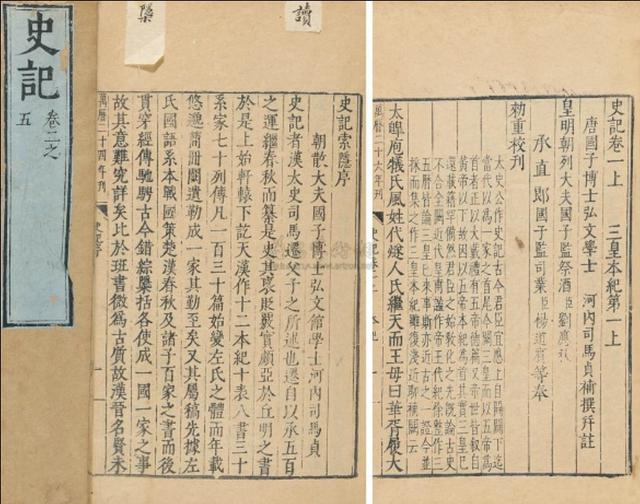 史記
卷二之
五
讀
史記卷一上 三皇本紀第一上
唐國子博士弘文學士 河內司馬貞補撰并註
皇明朝列大夫國子監祭酒臣劉應秋
承直郎國子監司業臣楊道賓等奉
勅重校刊
太史公作史記古今君臣宜應上自開闢下迄
當代以爲一家之首尾今闕三皇而以五帝爲
首者正以大戴禮有五帝德篇又帝世皆叙自
黃帝以下故因以五帝本紀爲首其實三皇已
還載籍罕備然君臣之始教化之先既論古史
不合全闕近代皇甫謐作帝王代紀徐整作三
五曆皆論三皇已來事斯亦近古之一證今並
採而集之作三皇本紀雖復淺近聊補闕云
太皥庖犧氏風姓代燧人氏繼天而王母曰華胥履大
萬曆二十六年刊
史記索隱序
朝散大夫國子博士弘文館學士河內司馬貞
史記者漢太史司馬遷父子之所述也遷自以承五百
之運繼春秋而纂是史其褒貶覈實頗亞於丘明之書
於是上始軒轅下訖天漢作十二本紀十表八書三十
系家七十列傳凡一百三十篇始變左氏之體而年載
悠邈簡冊闕遺勒成一家其勤至矣又其屬稿先據左
氏國語系本戰國策楚漢春秋及諸子百家之書而後
貫穿經傳馳騁古今錯綜檃括各使成一國一家之事
故其意難究詳矣比於班書微爲古質故漢晉名賢未
萬曆二十四年刊